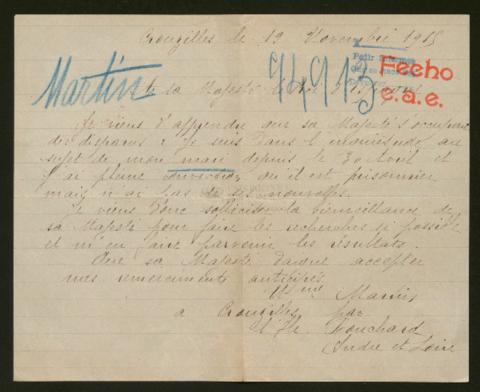 Crouzilles le 19 Novembre 1915
Martin
94913
Fecho
e.a.e.
a sa Majesté le Roi d'
Je viens d'apprendre que sa Majesté s'occupe
des disparus ; je suis dans l'inquiétude au
sujet de mon mari depuis le 30 Avril et
j'ai pleine conviction qu'il est prisonnier
mais n'ai pas de ses nouvelles.
Je viens donc solliciter la bienveillance de
sa Majesté pour faire les recherches si possible
et m'en faire parvenir les résultats.
Que sa Majesté daigne accepter
mes remerciements anticipés.
Mme Martin
a Crouzilles par
l'Ile Bouchard
Indre et Loire